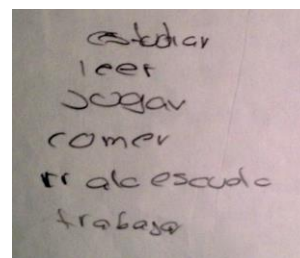 estudiar
leer
jogar
comer
rr ala escuela
trabaja